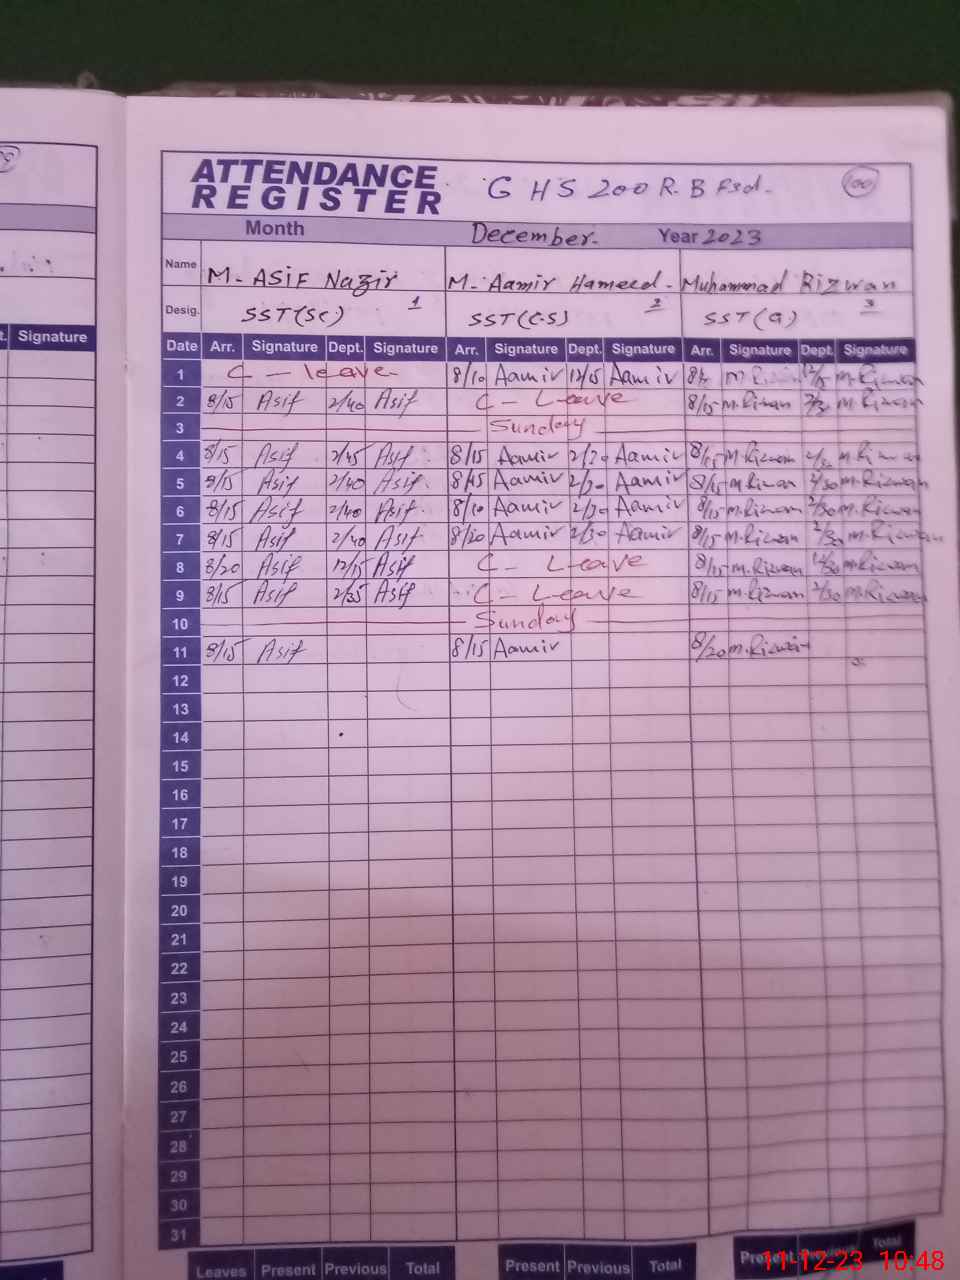 ATTENDANCE REGISTER G H S 200 R.B Fsd. 100
Month December. Year 2023
Name M- ASIF Nazir M- Aamir Hameed - Muhammad Rizwan
Desig. SST(SC) 1 SST(C.S) 2 SST(G) 3
t. Signature
Date Arr. Signature Dept. Signature Arr. Signature Dept. Signature Arr. Signature Dept. Signature
1 C - leave 8/10 Aamir 12/15 Aamir 12/15 M.Rizwan
2 8/15 Asif 2/40 Asif C - Leave 8/15 M.Rizwan M.Rizwan
3 Sunday
4 8/15 Asif 2/45 Asif 8/15 Aamir 2/30 Aamir 8/15 M.Rizwan M.Rizwan
5 8/15 Asif 2/40 Asif 8/15 Aamir 2/30 Aamir 8/15 M.Rizwan 2/30 M.Rizwan
6 8/15 Asif 2/40 Asif 8/10 Aamir 2/30 Aamir 8/15 M.Rizwan 2/30 M.Rizwan
7 8/15 Asif 2/40 Asif 8/20 Aamir 2/30 Aamir 8/15 M.Rizwan 2/30 M.Rizwan
8 8/20 Asif 12/15 Asif C - Leave 8/15 M.Rizwan M.Rizwan
9 8/15 Asif 2/35 Asif C - Leave 8/15 M.Rizwan 2/30 M.Rizwan
10 Sunday
11 8/15 Asif 8/15 Aamir 8/20 M.Rizwan
12
13
14
15
16
17
18
19
20
21
22
23
24
25
26
27
28
29
30
31
Leaves Present Previous Total Present Previous Total Present Previous Total
11-12-23 10:48